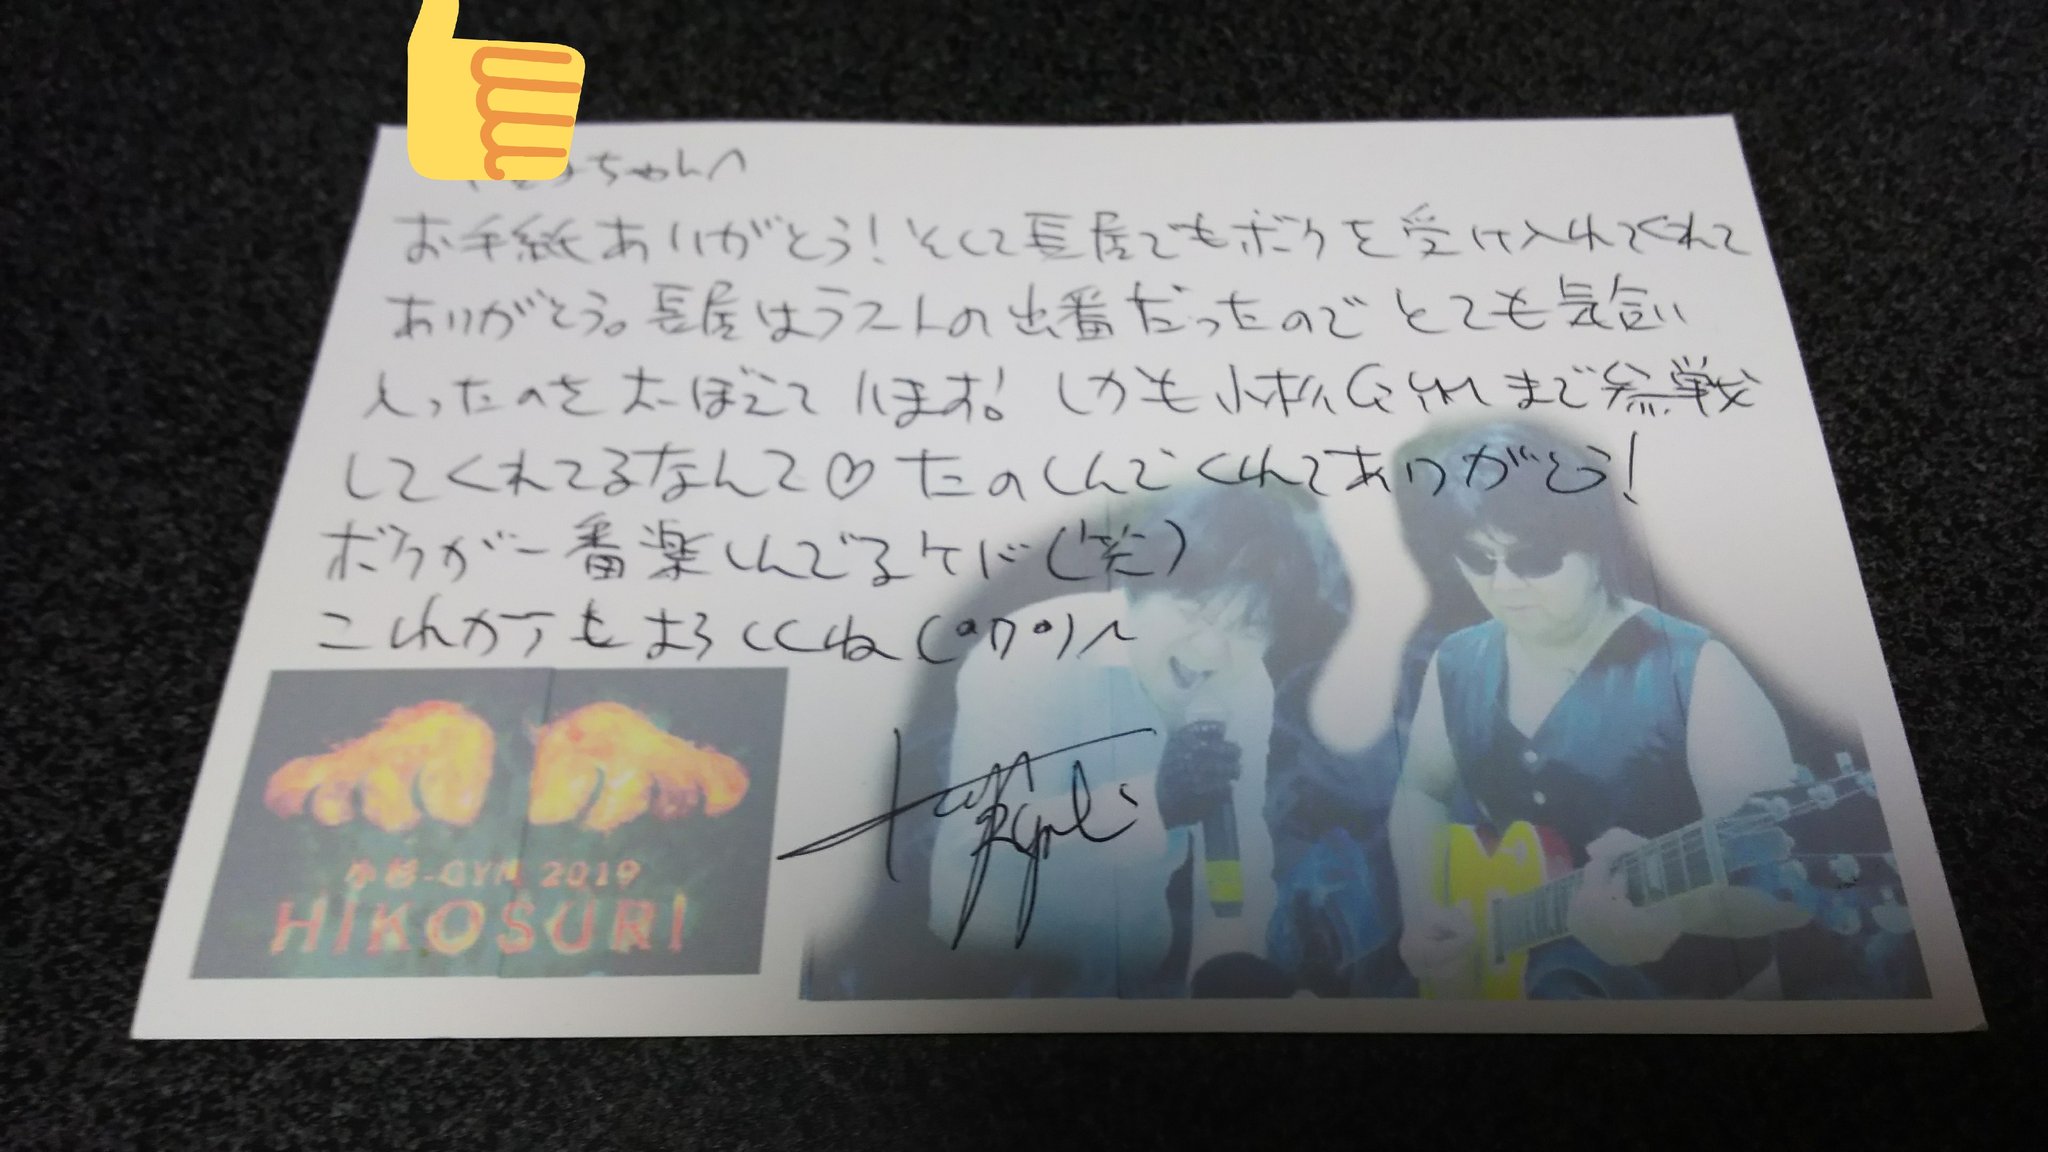 ちゃんへ
お手紙ありがとう！そして長居でもボクを受け入れてくれて
ありがとう。長居はラストの出番だったのでとても気合い
入ったのをおぼえています！しかも小杉GYMまで参戦
してくれてるなんて♡たのしんでくれてありがとう！
ボクが一番楽しんでるケド(笑)
これからもよろしくね(°▽°)へ
小杉-GYM 2019
HIKOSURI